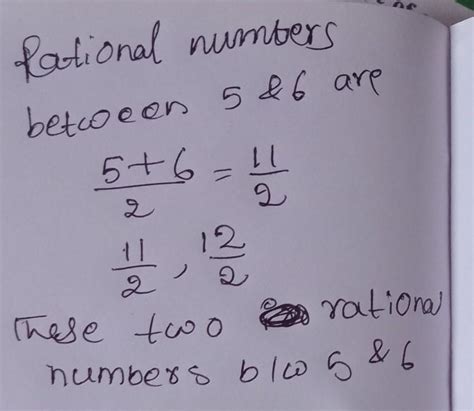 Rational numbers
between 5 & 6 are
5+6/2 = 11/2
11/2, 12/2
These two rational
numbers b/w 5 & 6